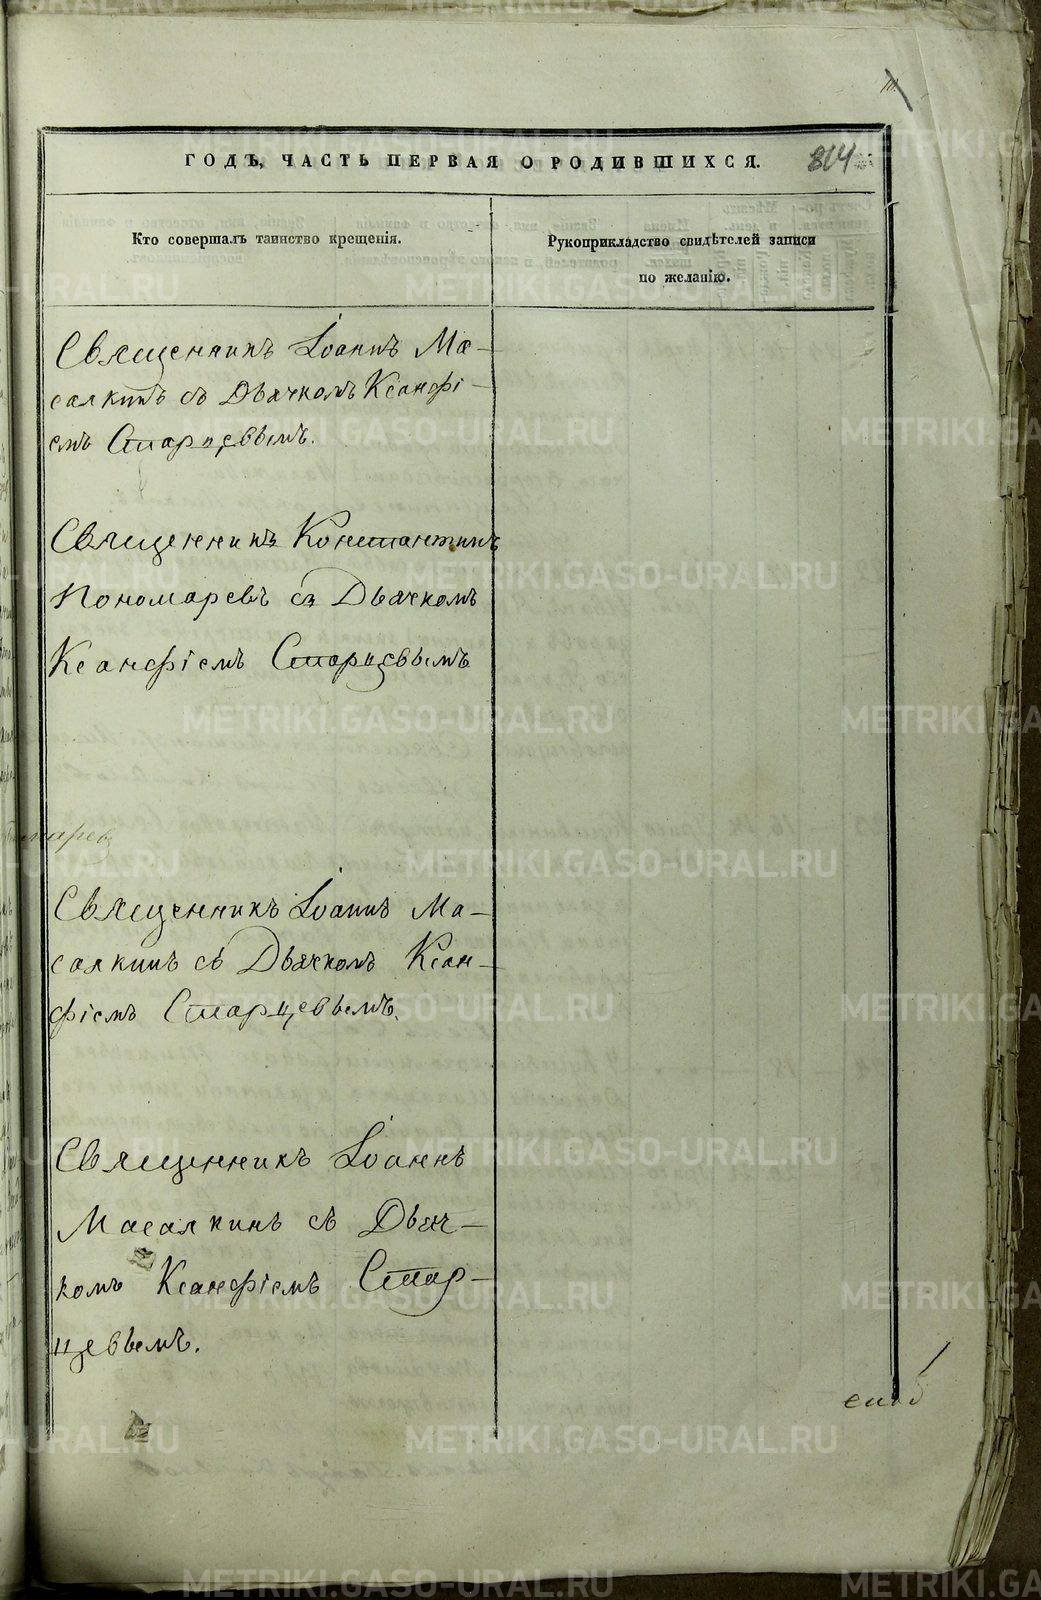 ГОДЪ, ЧАСТЬ ПЕРВАЯ О РОДИВШИХСЯ.
814
Кто совершалъ таинство крещенія.
Рукоприкладство свидѣтелей записи
по желанію.
Священникъ Іоаннъ Ма-
салкинъ съ Дьячкомъ Ксанфі-
емъ Старцевымъ.
Священникъ Константинъ
Пономаревъ съ Дьячкомъ
Ксанфіемъ Старцевымъ
Священникъ Іоаннъ Ма-
салкинъ съ Дьячкомъ Ксан-
фіемъ Старцевымъ.
Священникъ Іоаннъ
Масалкинъ съ Дьяч-
комъ Ксанфіемъ Стар-
цевымъ.
METRIKI.GASO-URAL.RU